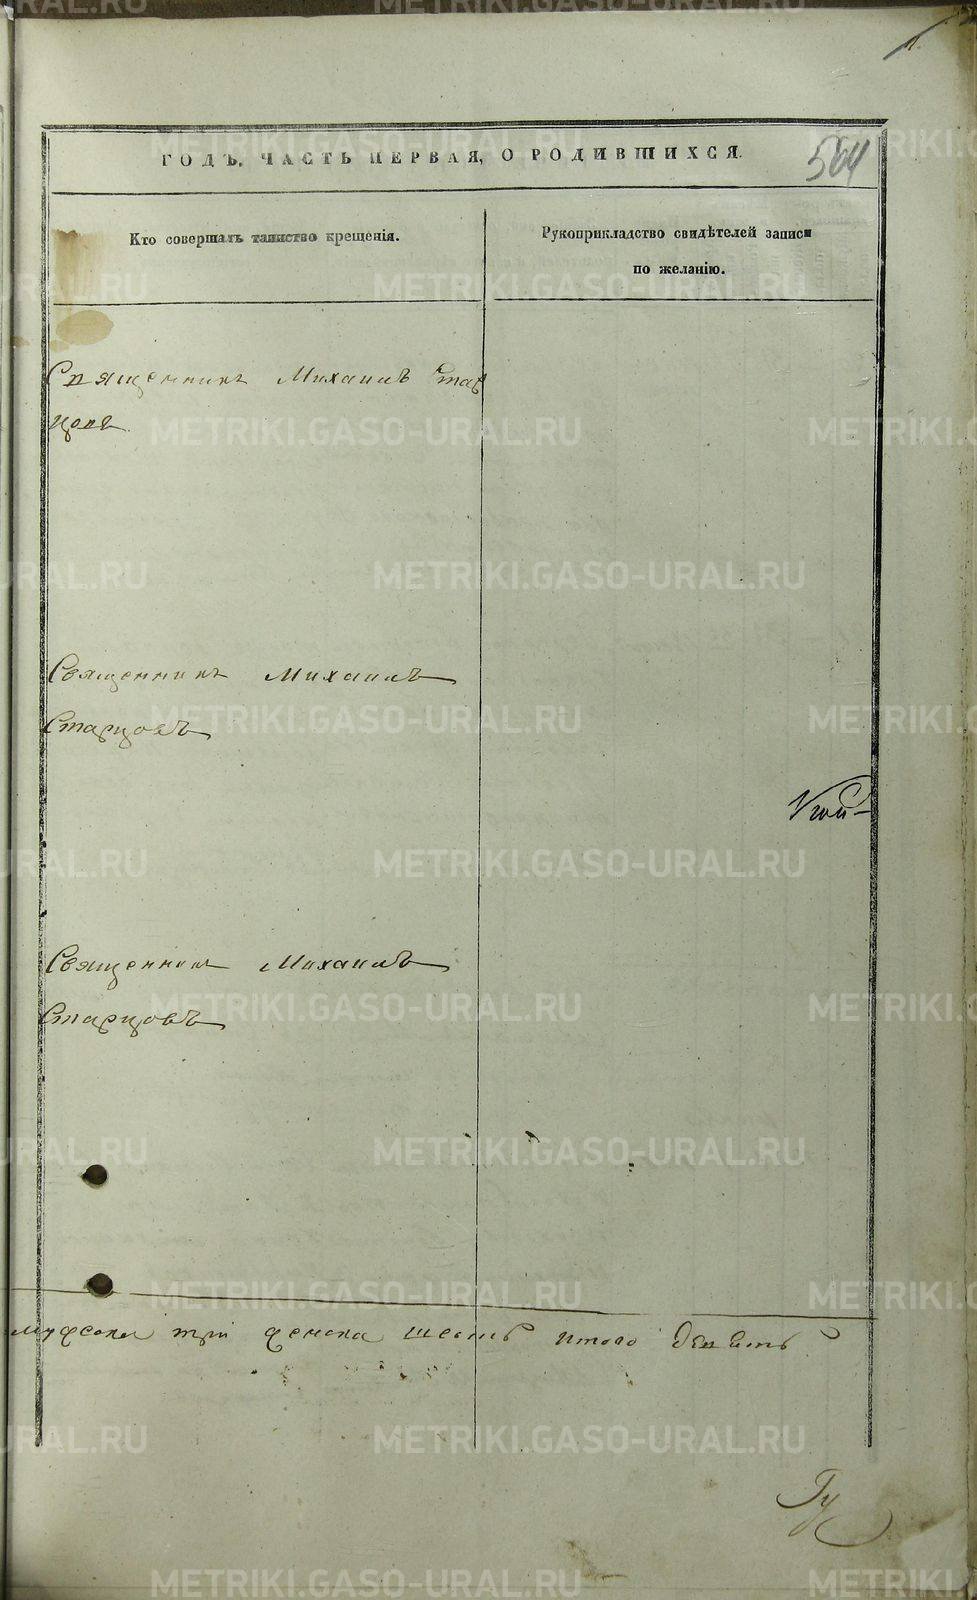 564
ГОДЪ. ЧАСТЬ ПЕРВАЯ, О РОДИВШИХСЯ.
Кто совершалъ таинство крещенія.
Рукоприкладство свидѣтелей записи
по желанію.
Священникъ Михаилъ Стар
цовъ
Священникъ Михаилъ
Старцовъ
Священникъ Михаилъ
Старцовъ
мужеска три женска шесть итого девять
METRIKI.GASO-URAL.RU